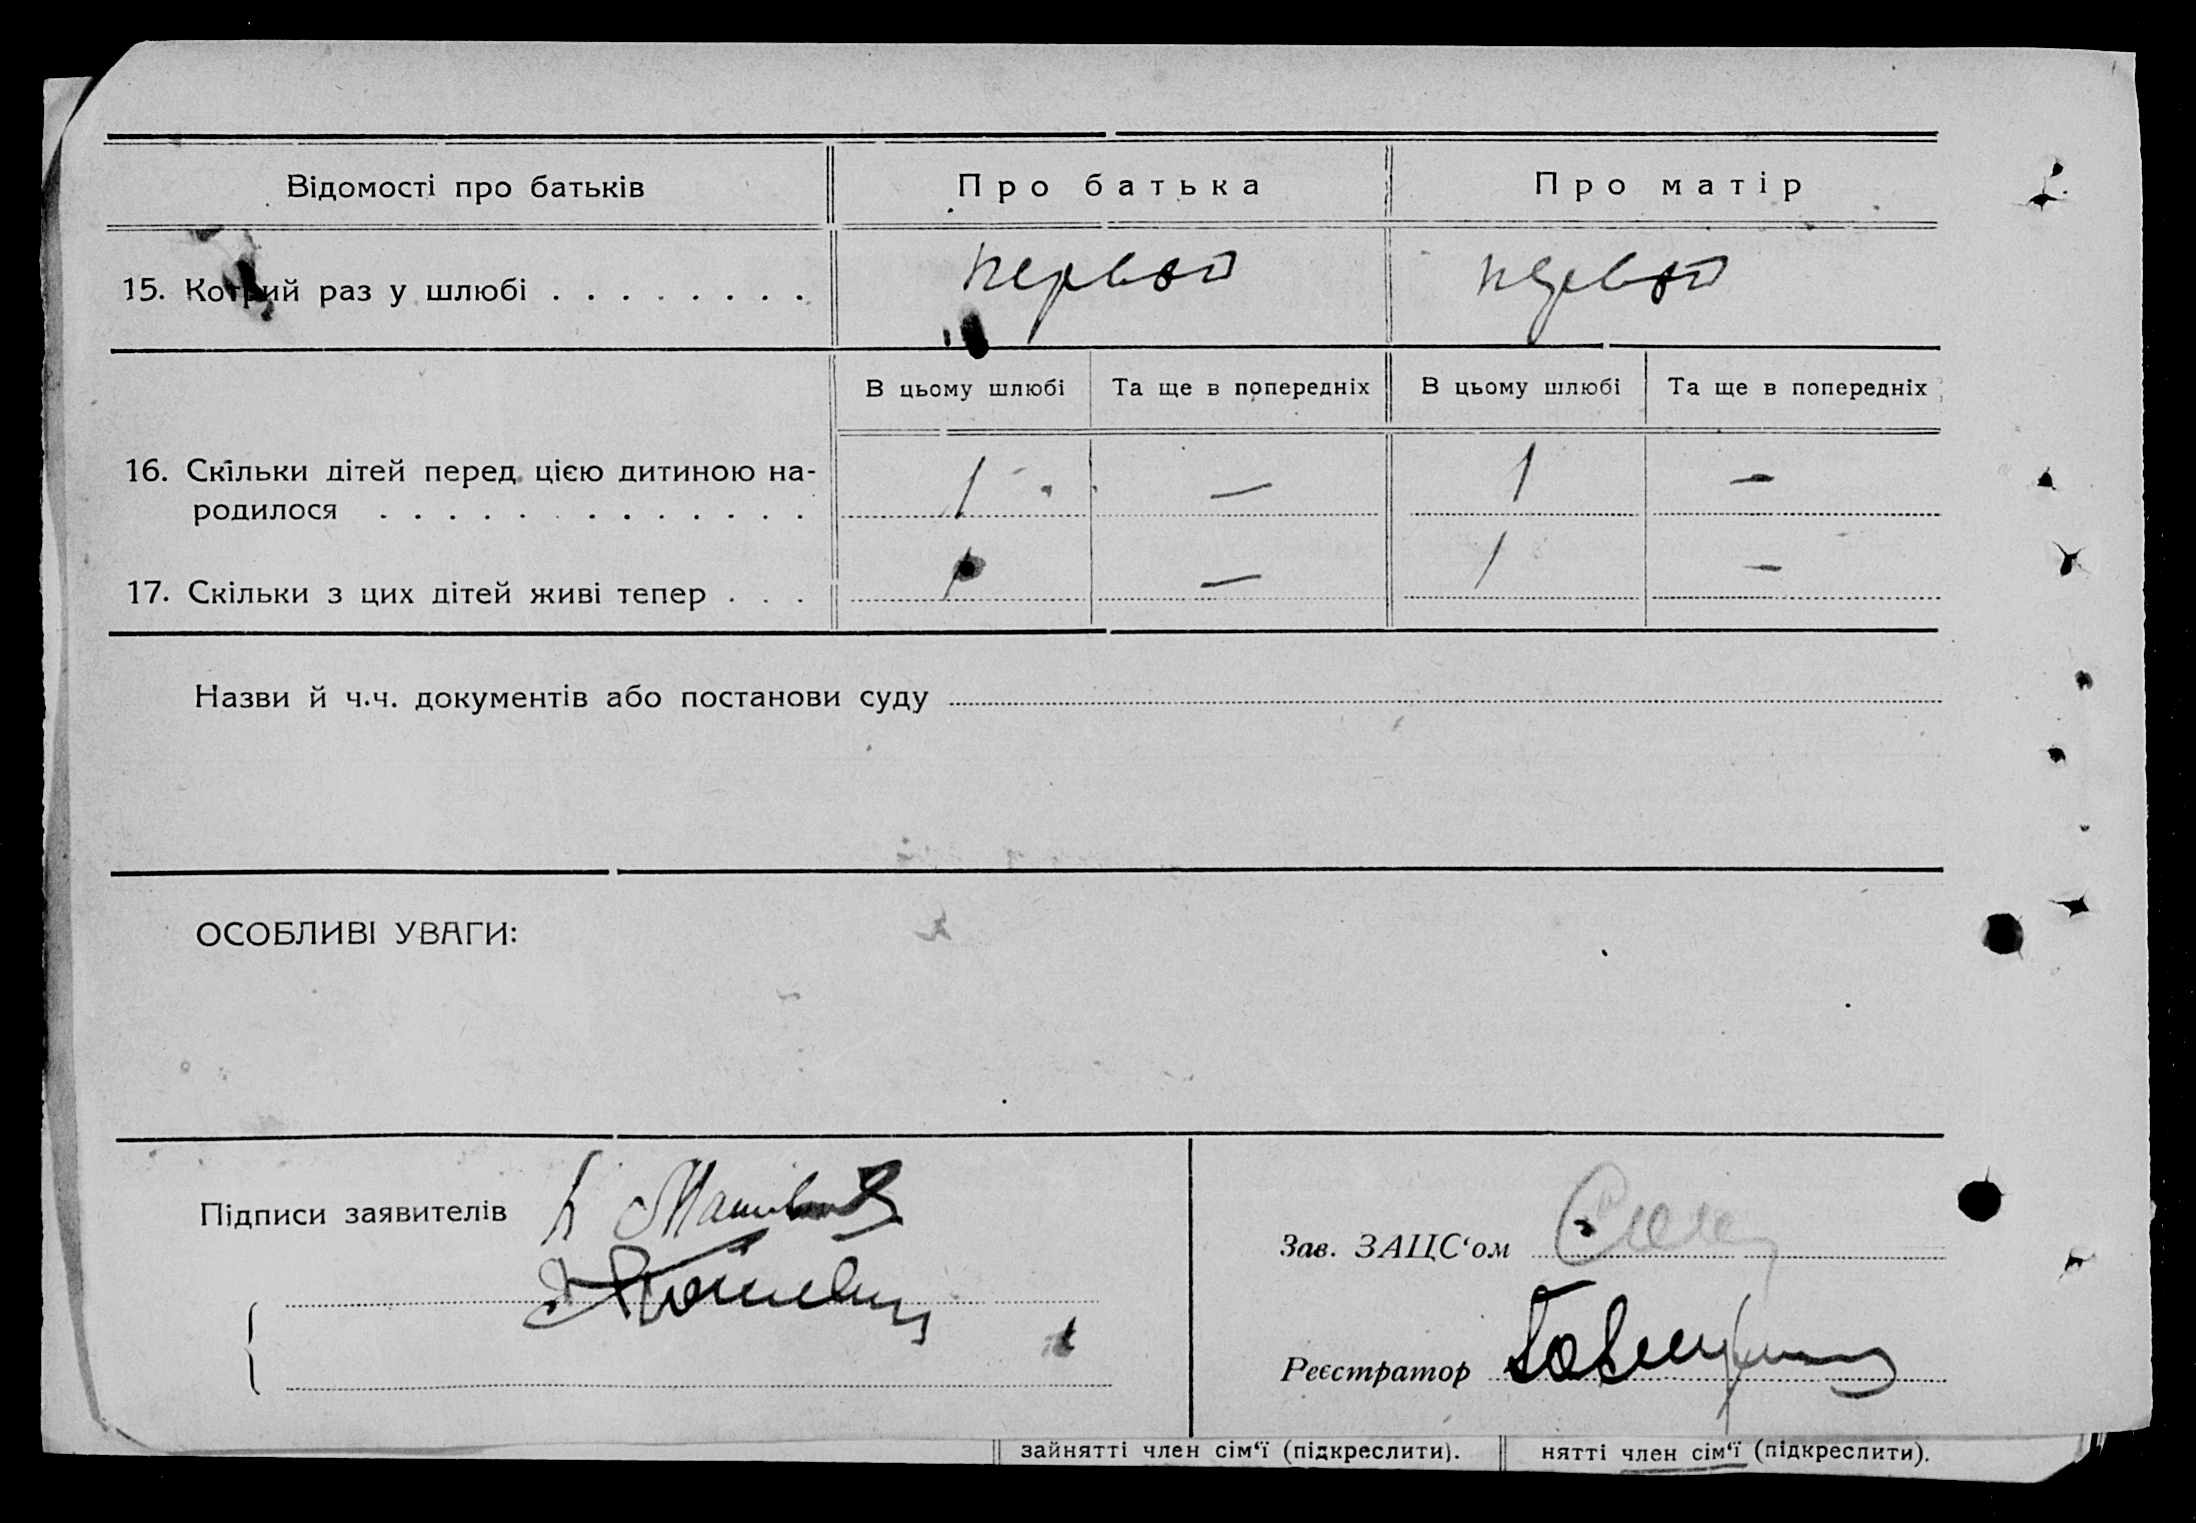 Відомості про батьків Про батька Про матір
15. Котрий раз у шлюбі . . . . . . . . первой первой
В цьому шлюбі Та ще в попередніх В цьому шлюбі Та ще в попередніх
16. Скільки дітей перед цією дитиною на-
родилося . . . . . . . . . . . . . 1 — 1 —
17. Скільки з цих дітей живі тепер . . . 1 — 1 —
Назви й ч.ч. документів або постанови суду
ОСОБЛИВІ УВАГИ:
Підписи заявителів
Зав. ЗАЦС‘ом
Реєстратор
зайнятті член сім‘ї (підкреслити). нятті член сім‘ї (підкреслити).